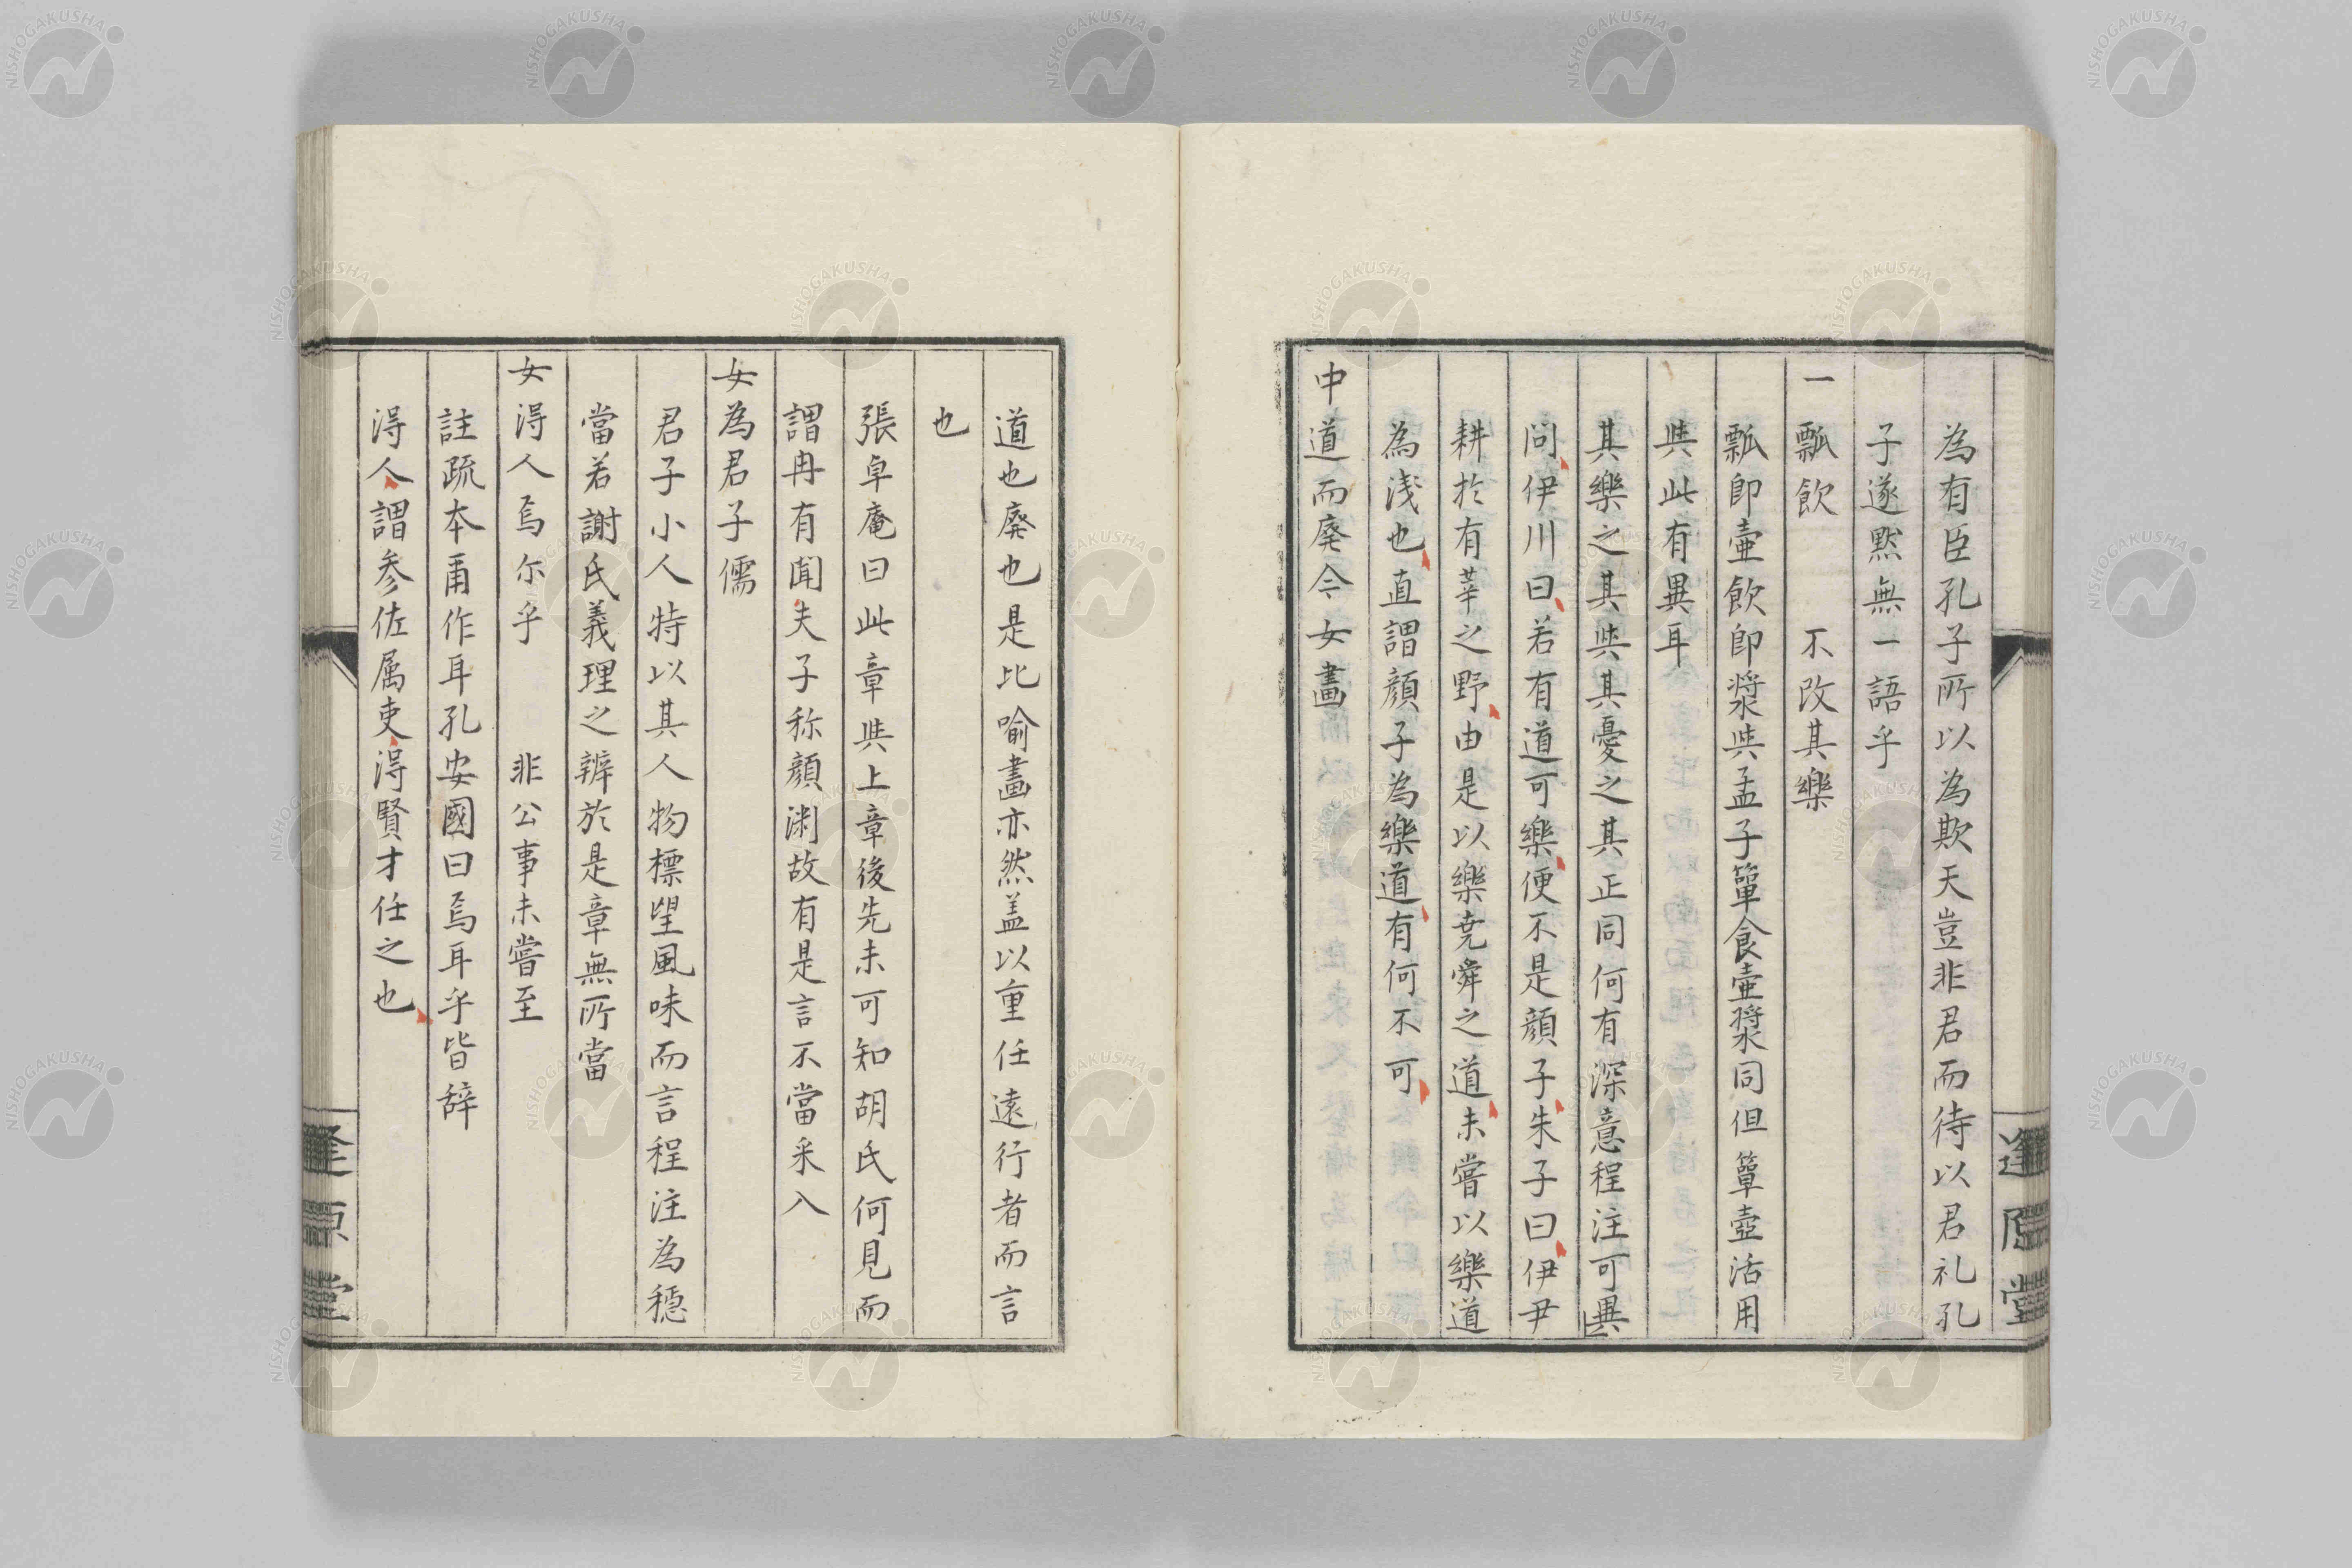 為有臣孔子所以為欺天豈非君而待以君礼孔
子遂黙無一語乎
一瓢飲　不改其樂
瓢即壷飲即漿㒷孟子簞食壷漿同但簞壺活用
㒷此有異耳
其樂之其㒷其憂之其正同何有深意程注可異
問伊川曰若有道可樂便不是顔子朱子曰伊尹
耕於有莘之野由是以樂尭舜之道未嘗以樂道
為浅也直謂顔子為樂道有何不可
中道而廃今女畫
逢原堂
道也廃也是比喻畫亦然盖以重任遠行者而言
也
張卓庵曰此章㒷上章後先未可知胡氏何見而
謂冉有聞夫子称顔渊故有是言不當采入
女為君子儒
君子小人特以其人物標望風味而言程注為穏
當若謝氏義理之辨於是章無所當
女得人焉尔乎　非公事未嘗至
註疏本甭作耳孔安國曰焉耳乎皆辞
得人謂参佐属吏得賢才任之也
逢原堂
NISHOGAKUSHA